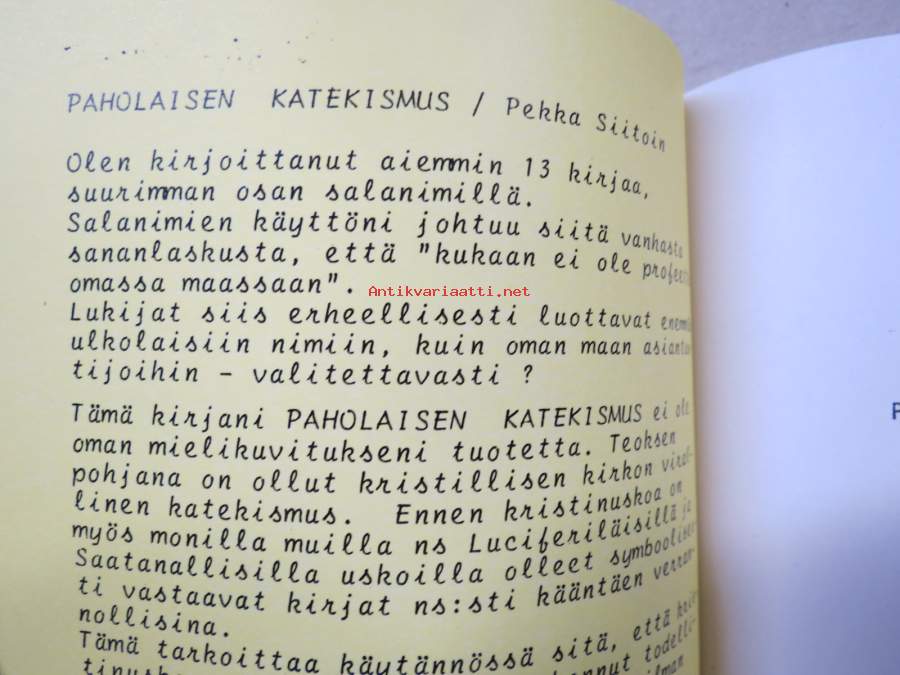 PAHOLAISEN KATEKISMUS / Pekka Siitoin
Olen kirjoittanut aiemmin 13 kirjaa,
suurimman osan salanimillä.
Salanimien käyttöni johtuu siitä vanhasta
sananlaskusta, että "kukaan ei ole
omassa maassaan".
Antikvariaatti.net
Lukijat siis erheellisesti luottavat
ulkolaisiin nimiin, kuin oman maan
tijoihin - valitettavasti ?
Tämä kirjani PAHOLAISEN KATEKISMUS ei ole
oman mielikuvitukseni tuotetta. Teoksen
pohjana on ollut kristillisen kirkon
linen katekismus. Ennen kristinuskoa on
myös monilla muilla ns Luciferiläisillä ja
Saatanallisilla uskoilla olleet
ti vastaavat kirjat ns:sti kääntäen
nollisina.
Tämä tarkoittaa käytännössä sitä, että
P